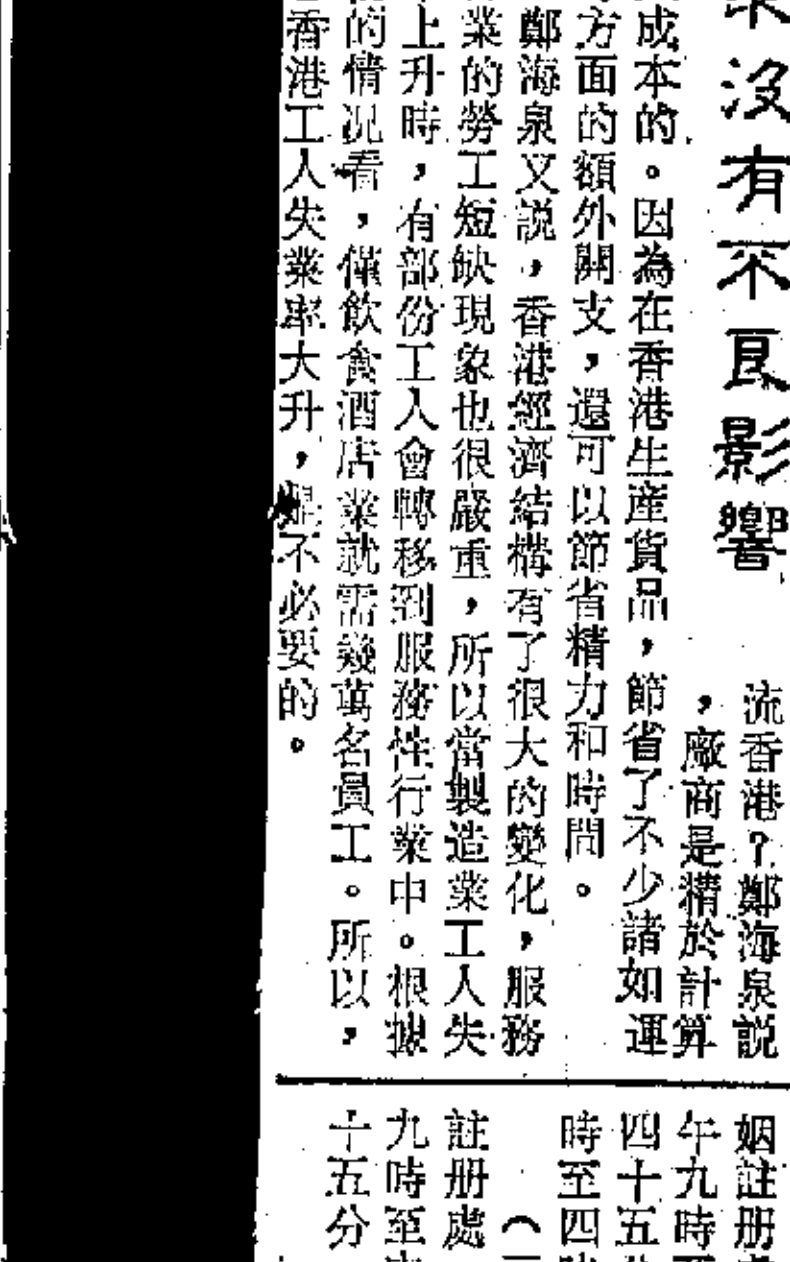 沒有不良影響
流香港？鄭海泉説
，廠商是精於計算
成本的。因為在香港生産貨品，節省了不少諸如運
方面的額外開支，還可以節省精力和時間。
鄭海泉又説，香港經濟結構有了很大的變化，服務
業的勞工短缺現象也很嚴重，所以當製造業工人失
上升時，有部份工人會轉移到服務性行業中。根據
的情况看，僅飲食酒店業就需幾萬名員工。所以，
香港工人失業率大升，是不必要的。
姻註册
午九時至
四十五
時至四時
（
註册處
九時至
十五分